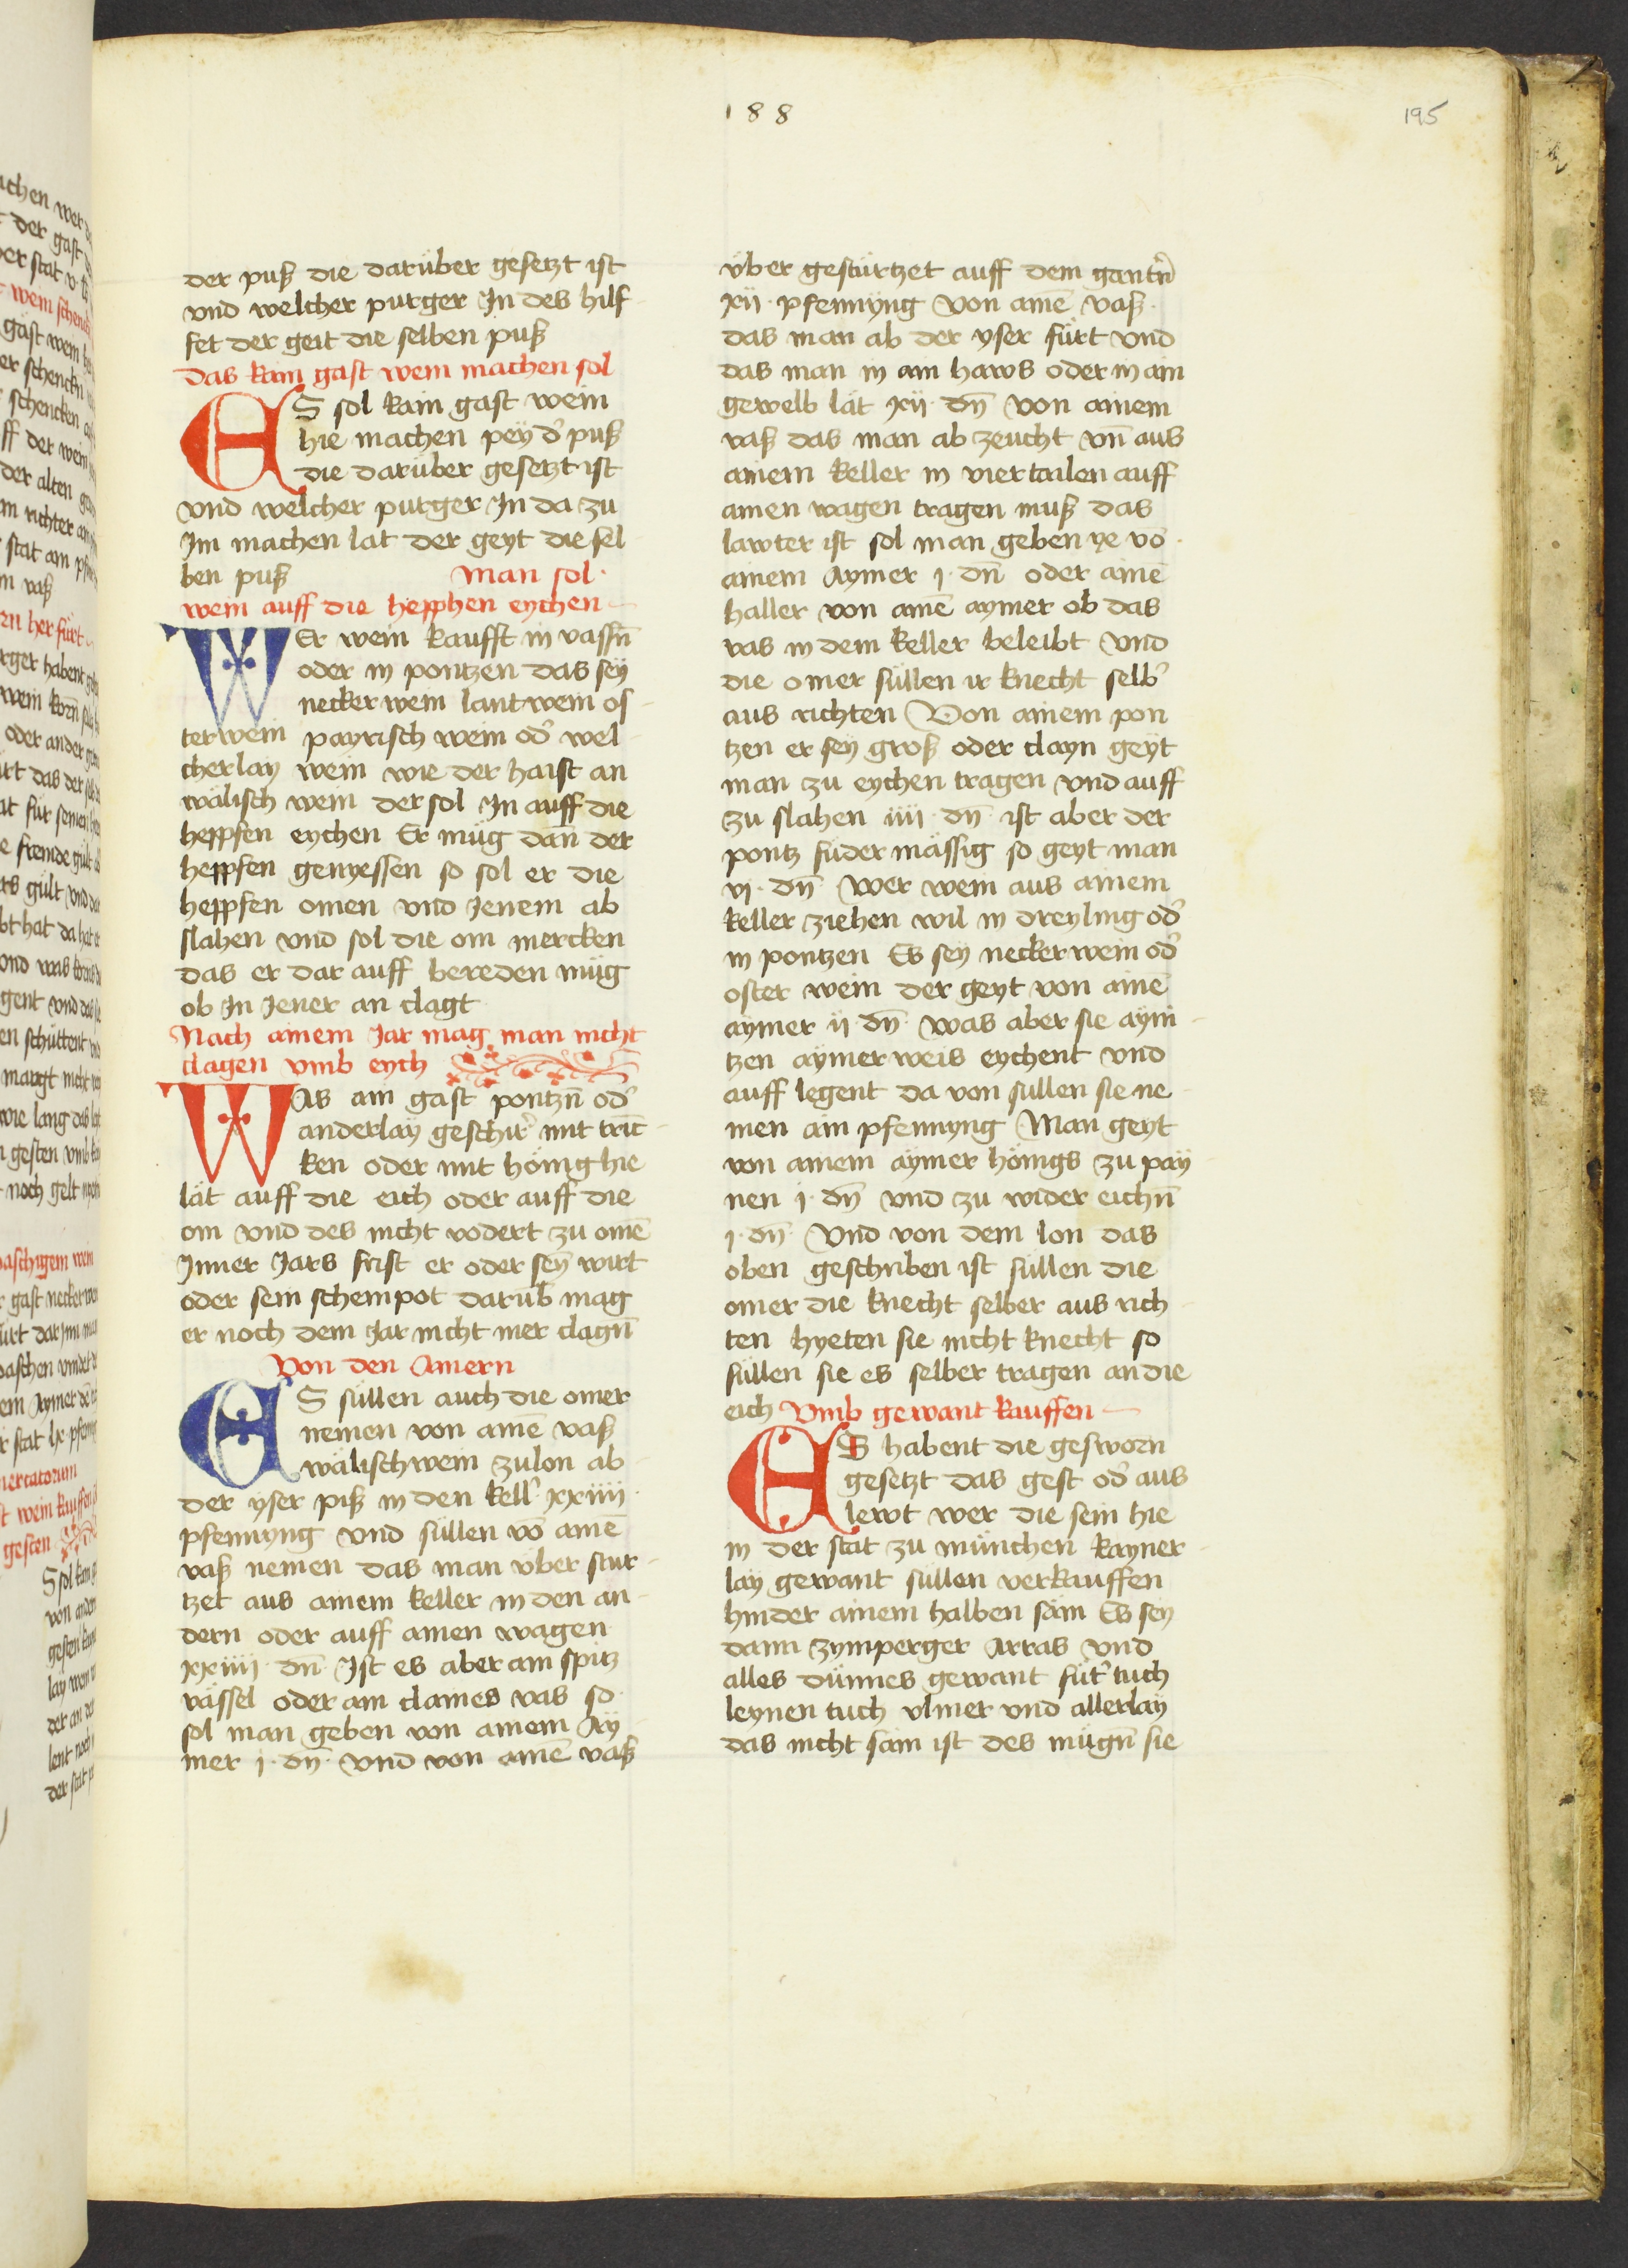 188
195
der puß die darüber gesetzt ist
vnd welcher purger In des hilf
fet der geit die selben puß
das kain gast wein machen sol
ES sol kain gast wein
hie machen pey d' puß
die darüber gesetzt ist
vnd welcher purger In da zu
Im machen lat der geyt die sel
ben puß Man sol
wein auff die hepphen eychen
WEr wein kaufft in vassn̄
oder in pontzen das sey
necker wein lantwein os
terwein payrisch wein od' wel
cherlay wein wie der haist an
wälisch wein der sol In auff die
heppfen eychen Er müg dan̄ der
heppfen genyessen so sol er die
heppfen omen vnd Jenem ab
slahen vnd sol die om mercken
das er dar auff bereden müg
ob In Jener an clagt
Nach ainem Jar mag man nicht
clagen vmb eych
WAs ain gast pontzn̄ od'
anderlay geschir' mit trīc
ken oder mit hönig hie
lät auff die eich oder auff die
om vnd des nicht vodert zu omē
Inner Jars frist er oder sein wirt
oder sein scheinpot darūb mag
er noch dem Jar nicht mer clagn̄
Von den Amern
ES süllen auch die omer
nemen von ainē vaß
wälischwein zulon ab
der yser piß in den kell' xxiiii
pfennyng vnd süllen vō ainē
vaß nemen das man v̈ber stur
tzet aus ainem keller in den an
dern oder auff ainen wagen
xxiiii dn̄ Ist es aber ain spitz
vässel oder ain claines vas so
sol man geben von ainem Ay
mer j. dn̄. vnd von ainē vaß
v̈ber gestürtzet auff dem gantn̄'
xij. pfennyng von ainē vaß
das man ab der yser fürt vnd
das man in ain haws oder in ain
gewelb lät xij. dn̄ von ainem
vaß das man ab zeucht vn̄ aus
ainem keller in viertailen auff
ainen wagen tragen muß das
lawter ist sol man geben ye vō
ainem Aymer j. dn̄ oder ainē
haller von ainē aymer ob das
vas in dem keller beleibt vnd
die omer süllen ir knecht selb'
aus richten Von ainem pon
tzen er sey groß oder clayn geyt
man zu eychen tragen vnd auff
zu slahen iiii dn̄ ist aber der
pontz füder mässig so geyt man
vj. dn̄ wer wein aus ainem
keller ziehen wil in dreyling od'
in pontzen Es sey neckerwein od'
oster wein der geyt von ainē
aymer ij dn̄. was aber sie ayni
tzen aymer weis eychent vnd
auff legent da von süllen sie ne
men ain pfennyng Man geyt
von ainem aymer hönigs zu pay
nen j. dn̄ vnd zu wider eichn̄
j. dn̄ Vnd von dem lon das
oben geschriben ist süllen die
omer die knecht selber aus rich
ten hyeten sie nicht knecht so
süllen sie es selber tragen an die
eich Vmb gewant kauffen
ES habent die gesworn
gesetzt das gest od' aus
lewt wer die sein hie
in der stat zu münchen kayner
lay gewant süllen verkauffen
hinder ainem halben säm Es sey
dann zymperger Arras vnd
alles dünnes gewant füt' tuch
leynen tuch vlmer vnd allerlay
das nicht säm ist des mügn̄ sie